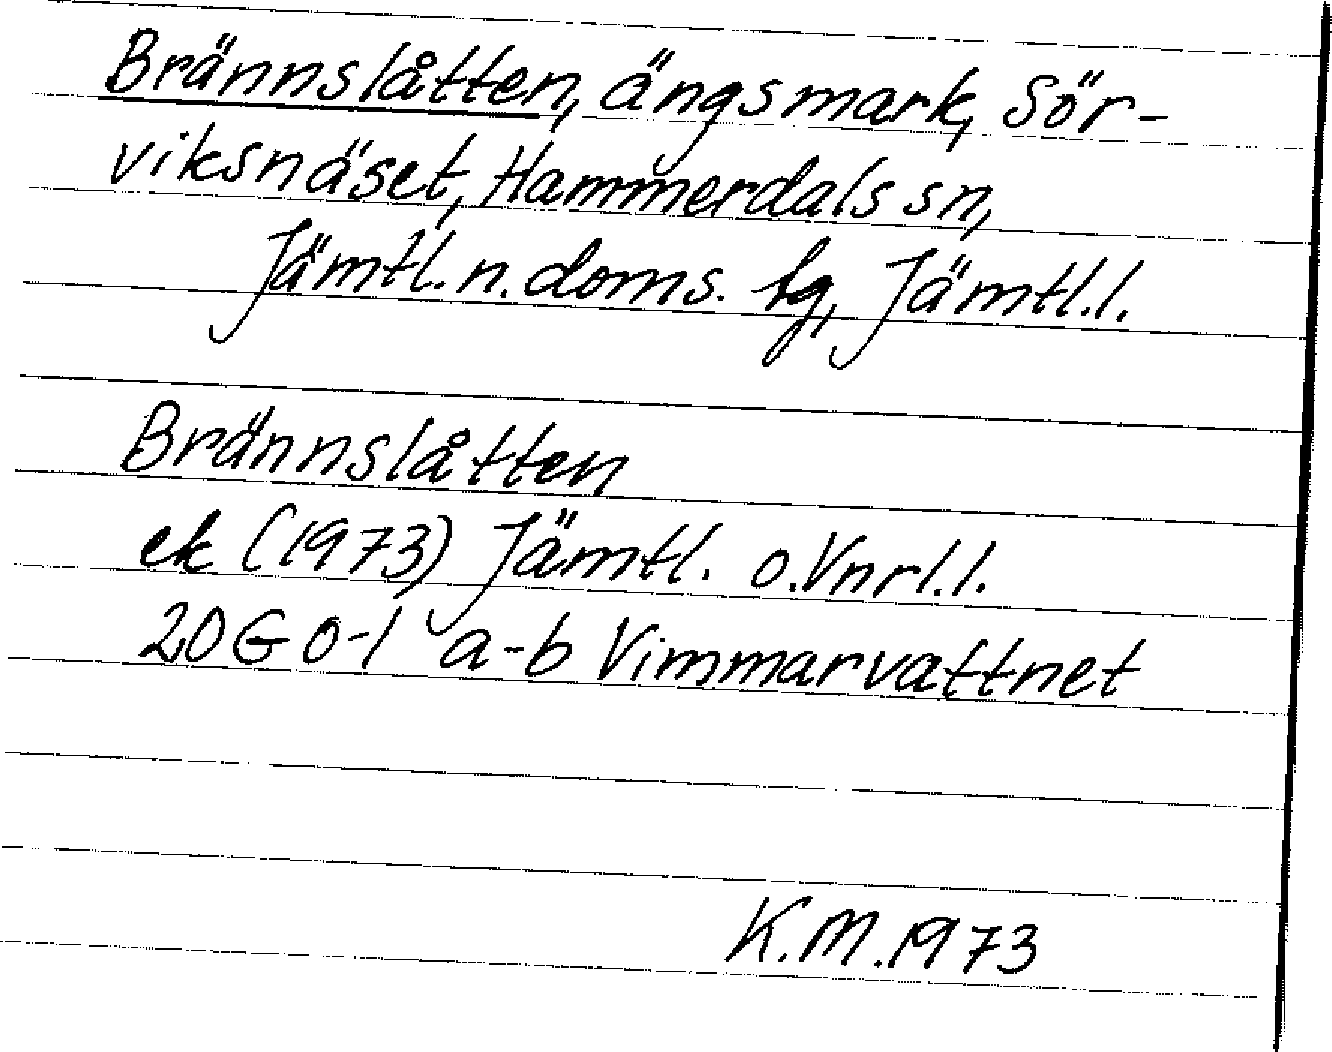 Brännslåtten, ängsmark, Sör-
viksnäset, Hammerdals sn,
Jämtl. n. doms. fg, Jämtl.l.
Brännslåtten
ek (1973) Jämtl. o. Vnrl.l.
20G 0-1 a-b Vimmarvattnet
K.M. 1973